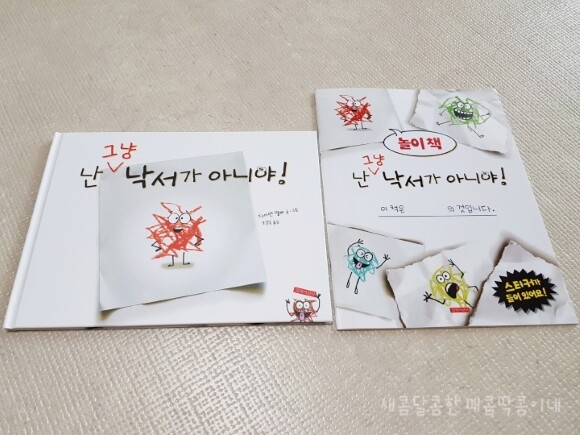 그냥
난 낙서가 아니야!
놀이책
그냥
난 낙서가 아니야!
이 책은 의 것입니다.
스티커가
들어 있어요!
새콤달콤한 매콤딱콤이네